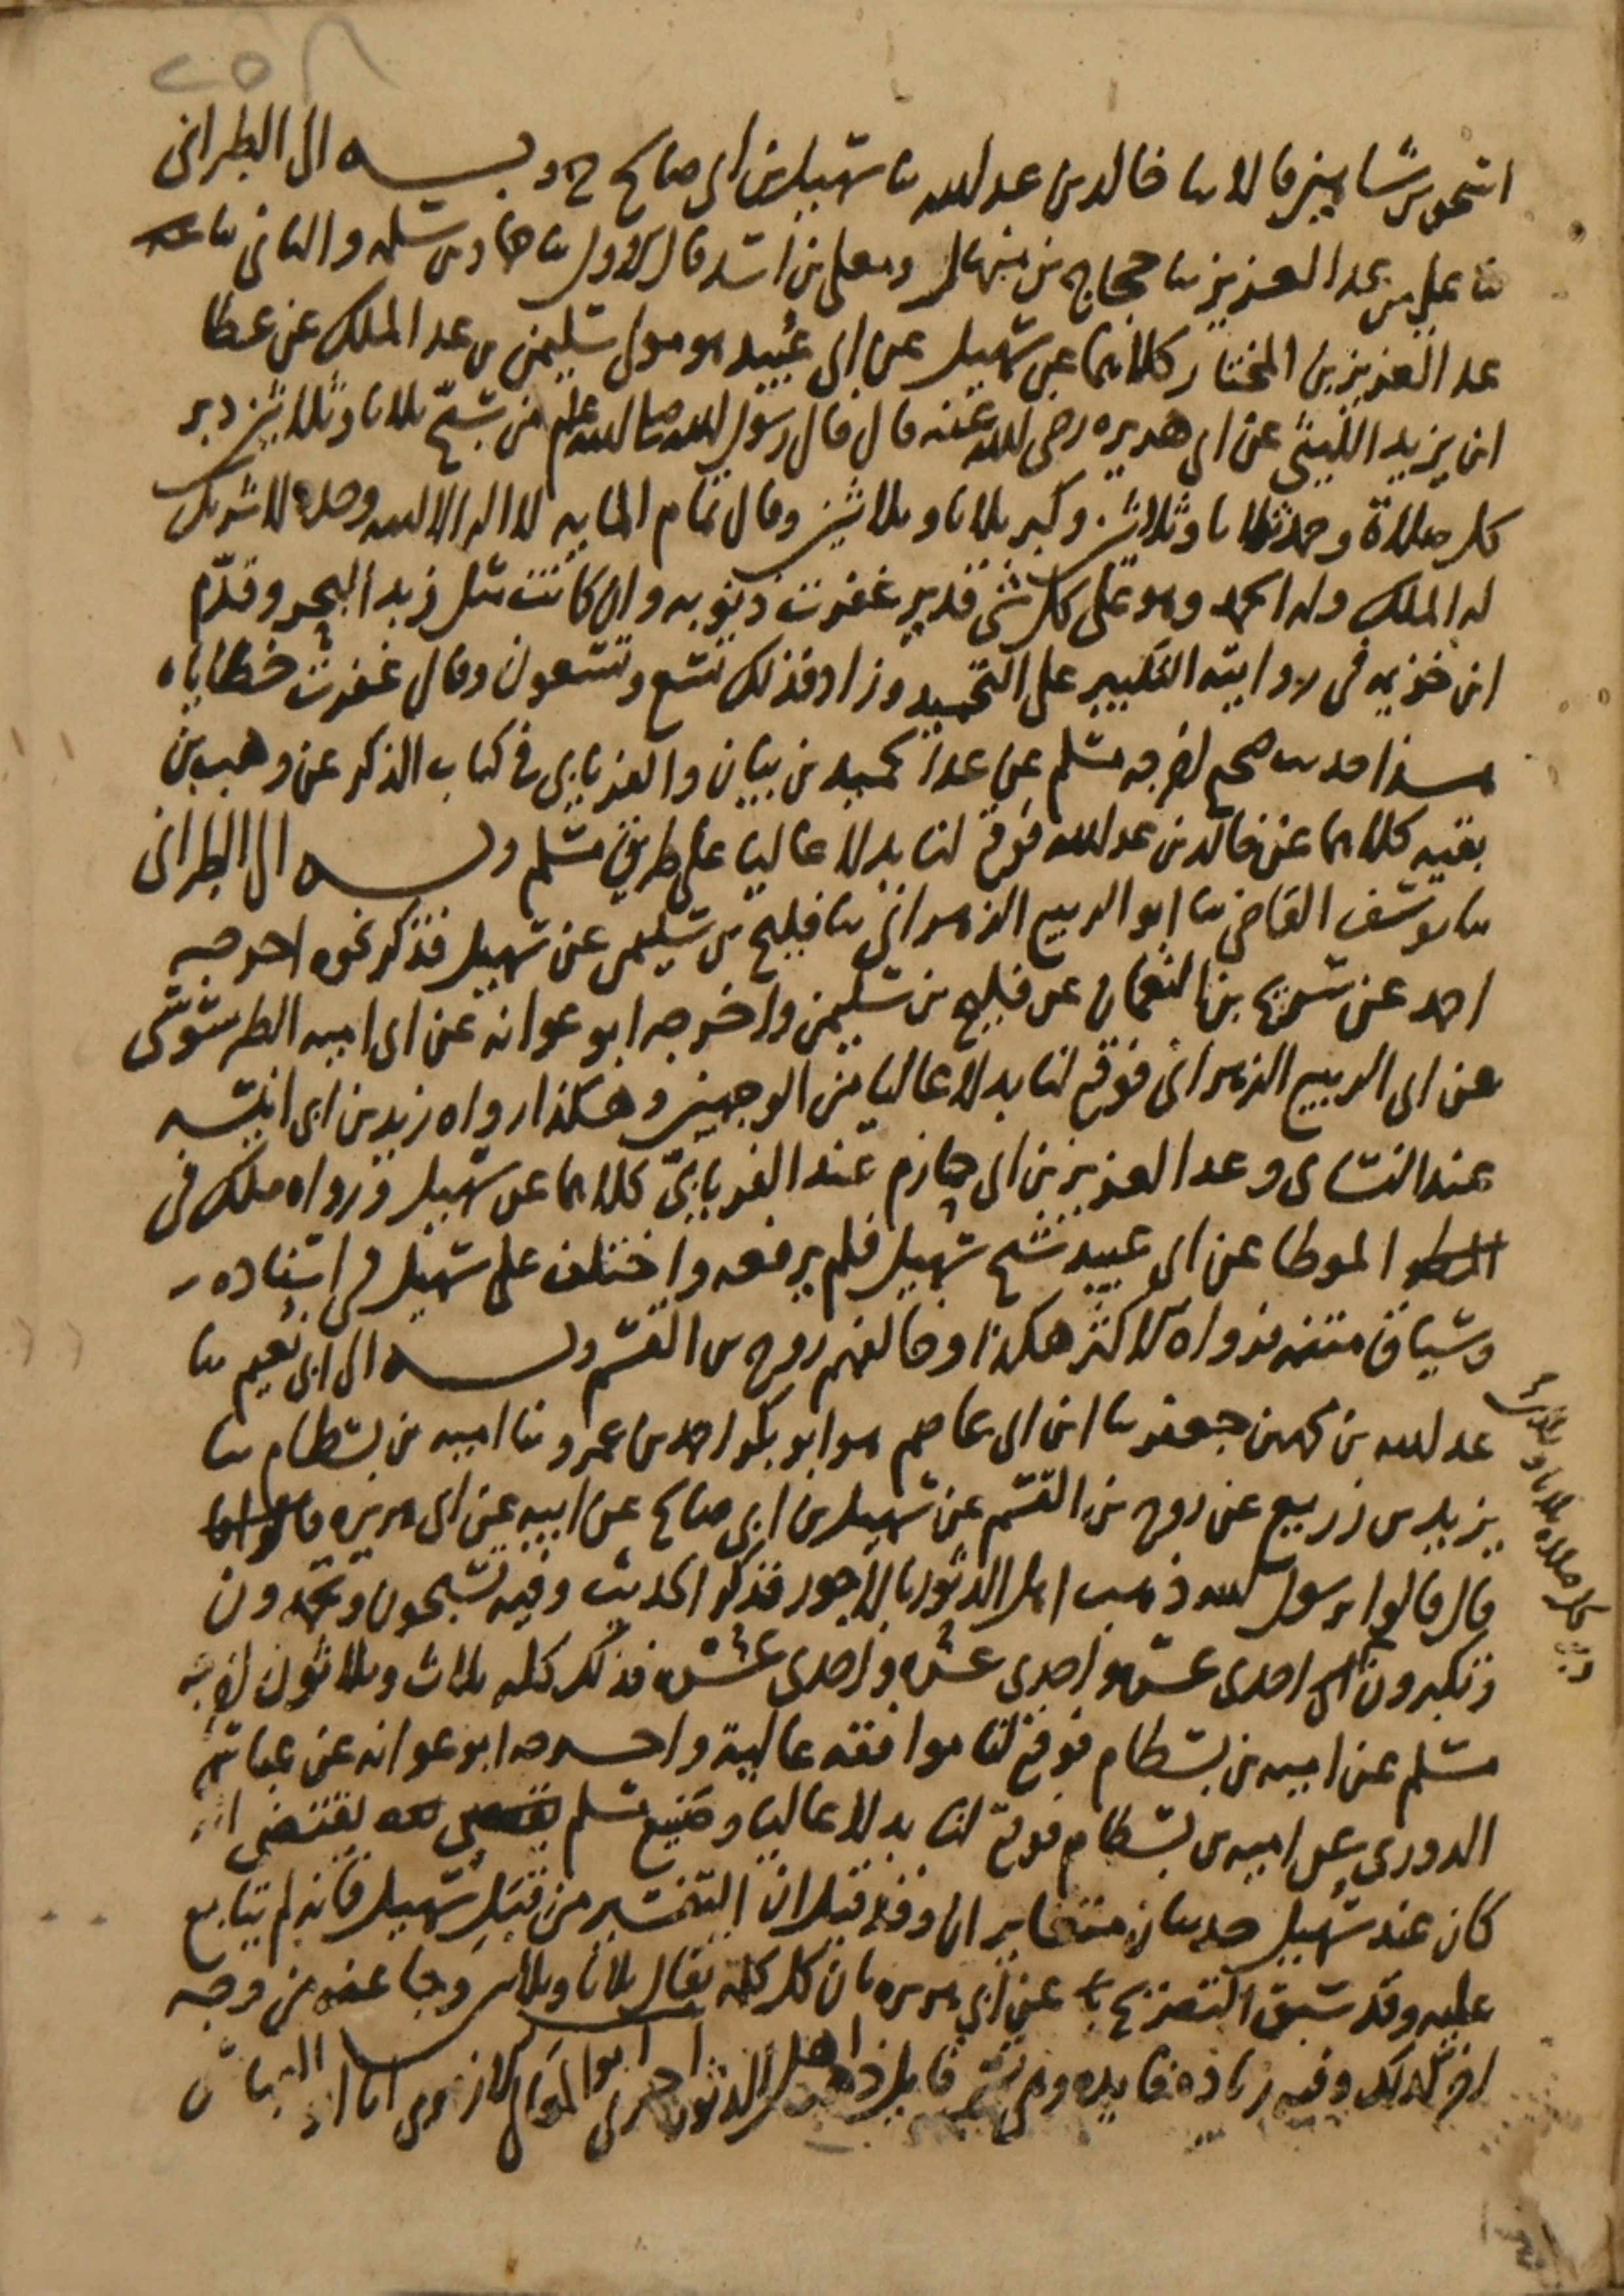 ٢٥٨
اسحق بن شاهين قالا ثنا خالد بن عبد الله ثنا سهيل بن ابي صالح ح وبـــه الى الطبراني
ثنا علي بن عبد العزيز ثنا حجاج بن منهال ومعلى بن اسد قال الاول ثنا حماد بن سلمه والثاني ثنا
عبد العزيز بن المختار كلاهما عن سهيل عن ابي عبيد هو مولى سليمن بن عبد الملك عن عطا
ابن يزيد الليثي عن ابي هريره رضي الله عنه قال قال رسول الله صلى الله عليه وسلم من سبح ثلاثا وثلاثين دبر
كل صلاة وحمد ثلاثا وثلاثين وكبر ثلاثا وثلاثين وقال تمام المايه لا اله الا الله وحده لا شريك
له الملك وله الحمد وهو على كل شي قدير غفرت ذنوبه وان كانت مثل زبد البحر وقدّم
ابن خزيمه في روايته التكبير على التحميد وزاد فذلك تسع وتسعون وقال غفرت خطاياه
هـذا حديث صحيح اخرجه مسلم عن عبد الحميد بن بيان والفريابي في كتاب الذكر عن وهب بن
بقيه كلاهما عن خالد بن عبد الله فوقع لنا بدلا عاليا على طريق مسلم وبـــه الى الطبراني
ثنا يوسف القاضي ثنا ابو الربيع الزهراني ثنا فليح بن سليمن عن سهيل فذكر نحوه اخرجه
احمد عن سريج بن النعمان عن فليح بن سليمن واخرجه ابو عوانه عن ابي اميه الطرسوسي
عن ابي الربيع الزهراني فوقع لنا بدلا عاليا من الوجهين وهكذا رواه زيد بن ابي انيسه
عند النسائي وعبد العزيز بن ابي حازم عند الفريابي كلاهما عن سهيل ورواه ملك في
الموطا عن ابي عبيد شيخ سهيل فلم يرفعه واختلف على سهيل في اسناده
وسياق متنه فرواه الاكثر هكذا وخالفهم روح بن القسم وبـــه الى ابي نعيم ثنا
عبد الله بن محمد بن جعفر ثنا ابن ابي عاصم هو ابو بكر احمد بن عمرو ثنا اميه بن بسطام ثنا
يزيد بن زريع عن روح بن القسم عن سهيل بن ابي صالح عن ابيه عن ابي هريره
قال قالوا يرسول الله ذهب اهل الدثور بالاجور فذكر الحديث وفيه تسبحون وتحمدون
وتكبرون احدى عشره واحدى عشره واحدى عشره فذلك كله ثلاث وثلاثون اخرجه
مسلم عن اميه بن بسطام فوقع لنا موافقه عالية واخرجه ابو عوانه عن عباس
الدوري عن اميه بن بسطام فوقع لنا بدلا عاليا وصنيع مسلم يقتضي انه
كان عند سهيل حديثان متغايران وقد قيل ان التخسير من قبل سهيل فانه لم يتابع
عليه وقد سبق التصريح عن ابي هريره بان كل كلمه تقال ثلاثا وثلاثين وجا عنه من وجه
اخر كذلك وفيه زياده فايده وهي تسميه قايل ذهب اهل الدثور اخبرني ابو المعالي الازهري انا
دبر كل صلاه ثلاثا وثلاثين